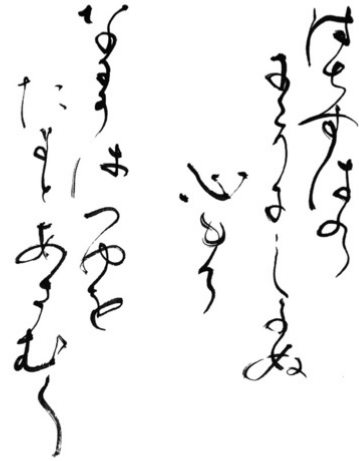 はちすはの
にこりにしまぬ
心もて
なにかはつゆを
たまとあさむく